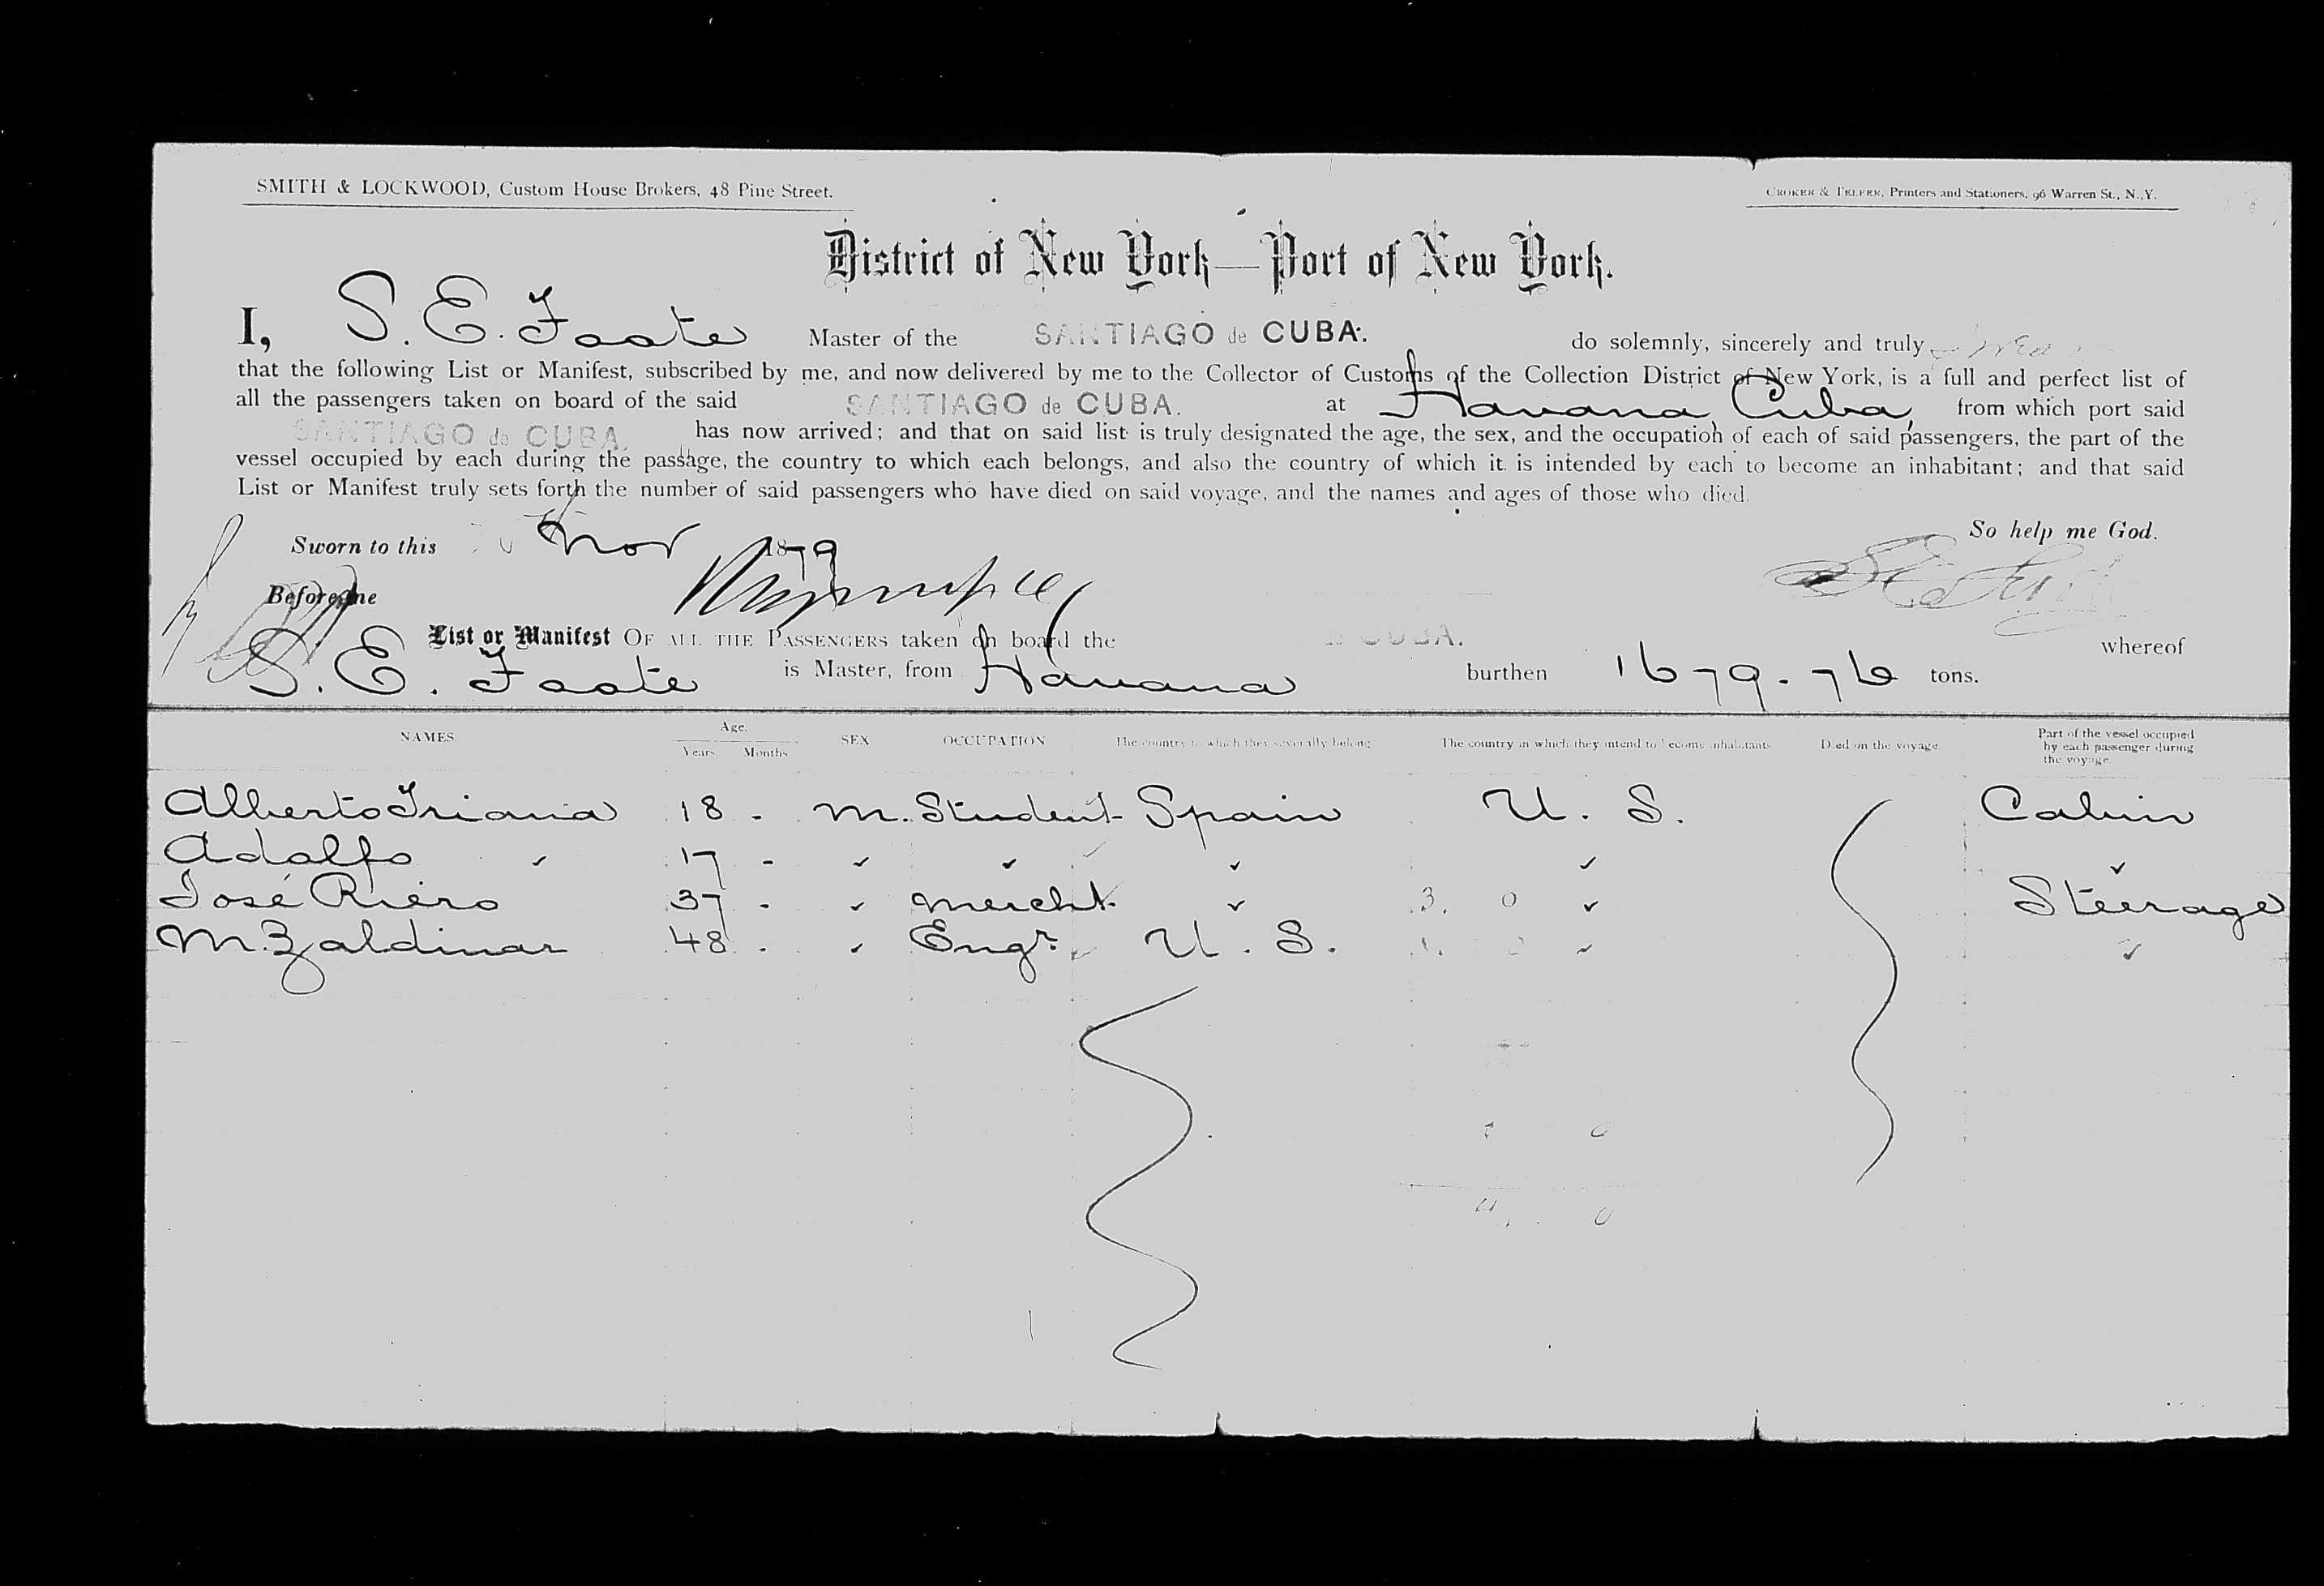 SMITH & LOCKWOOD, Custom House Brokers, 48 Pine Street.
CROKER & TELFER, Printers and Stationers, 96 Warren St., N.Y.
District of New York—Port of New York.
I, S. E. Foote Master of the SANTIAGO de CUBA. do solemnly, sincerely and truly swear
that the following List or Manifest, subscribed by me, and now delivered by me to the Collector of Customs of the Collection District of New York, is a full and perfect list of
all the passengers taken on board of the said SANTIAGO de CUBA. at Havana, Cuba, from which port said
SANTIAGO de CUBA. has now arrived; and that on said list is truly designated the age, the sex, and the occupation of each of said passengers, the part of the
vessel occupied by each during the passage, the country to which each belongs, and also the country of which it is intended by each to become an inhabitant; and that said
List or Manifest truly sets forth the number of said passengers who have died on said voyage, and the names and ages of those who died.
So help me God.
Sworn to this Nov 1879
Before me
List or Manifest OF ALL THE PASSENGERS taken on board the CUBA. whereof
S. E. Foote is Master, from Havana burthen 1679.76 tons.
NAMES Age. Years Months SEX OCCUPATION The country to which they severally belong The country in which they intend to become inhabitants Died on the voyage Part of the vessel occupied by each passenger during the voyage.
Alberto Triana 18 - M. Student Spain U. S. Cabin
Adolfo ✓ 17 - ✓ ✓ ✓ ✓ ✓
José Riero 37 - ✓ Mercht. ✓ 3. 0 ✓ Steerage
M. Zaldivar 48 - ✓ Engr. U. S. ✓ ✓